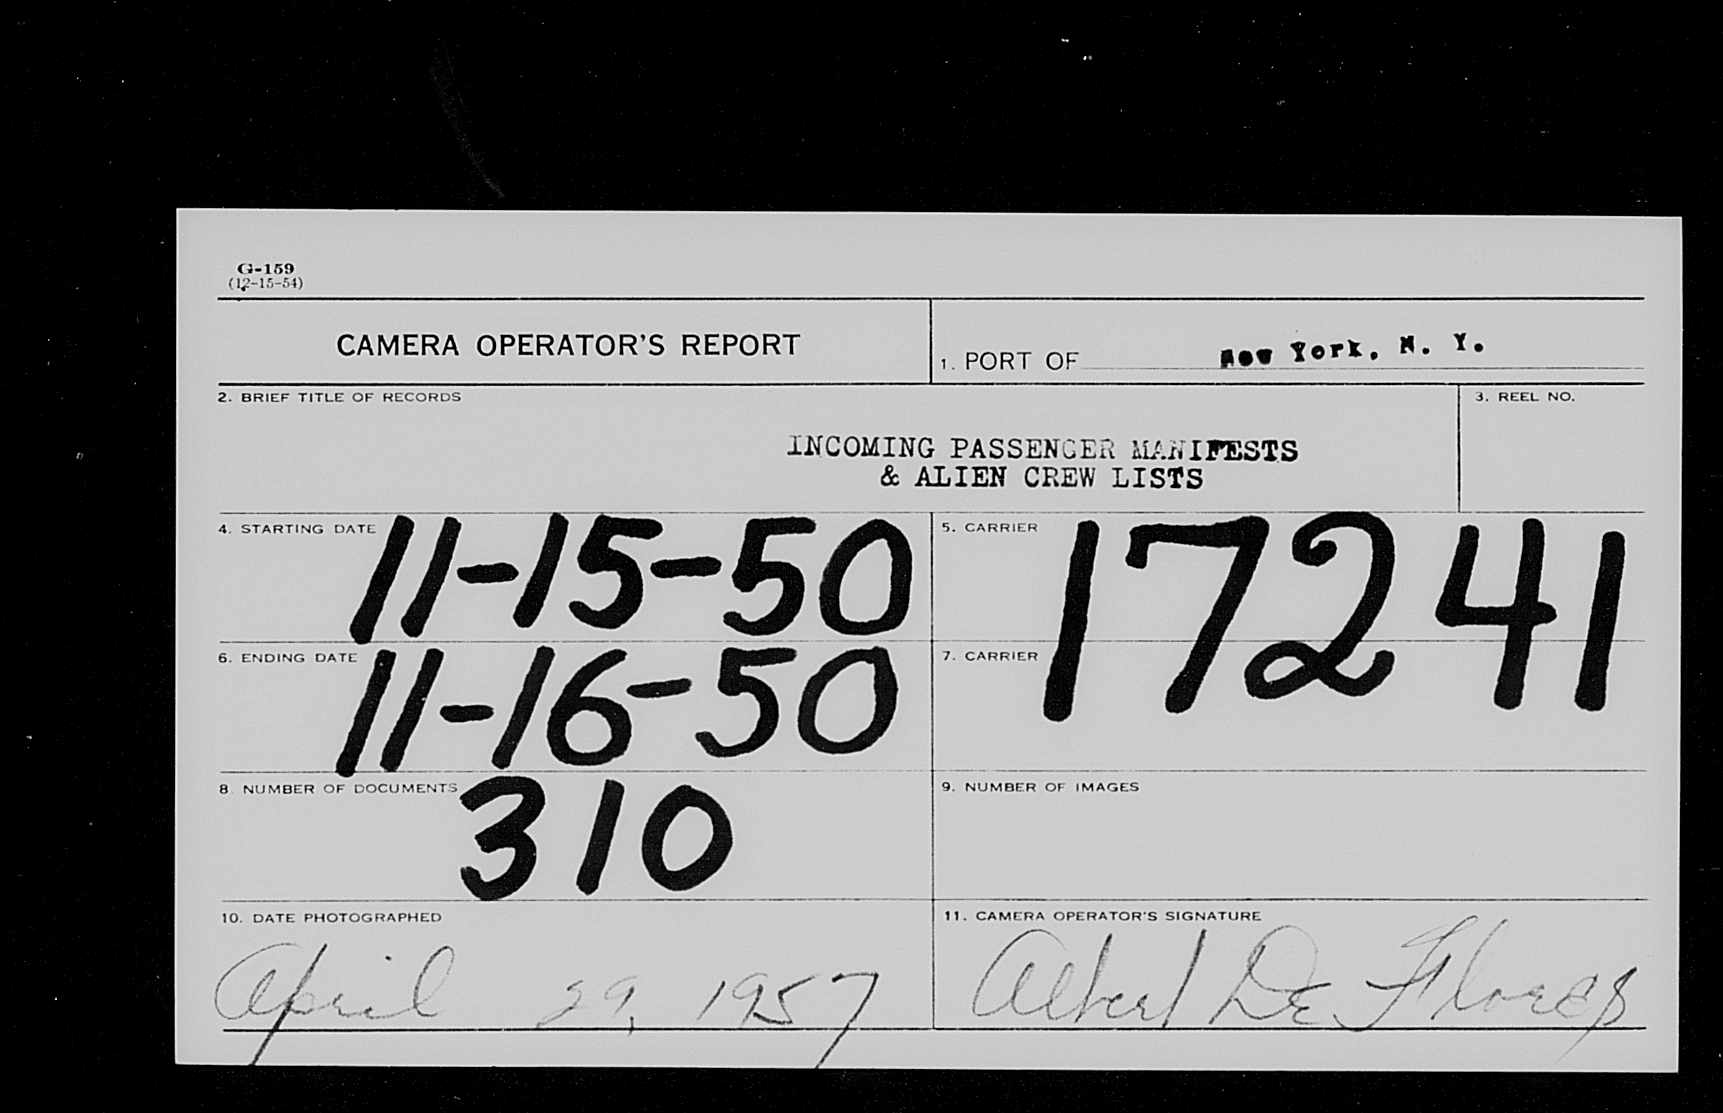 G-159
(12-15-54)
CAMERA OPERATOR'S REPORT
1. PORT OF New York, N. Y.
2. BRIEF TITLE OF RECORDS
3. REEL NO.
INCOMING PASSENGER MANIFESTS
& ALIEN CREW LISTS
4. STARTING DATE 11-15-50
5. CARRIER 17241
6. ENDING DATE 11-16-50
7. CARRIER
8. NUMBER OF DOCUMENTS 310
9. NUMBER OF IMAGES
10. DATE PHOTOGRAPHED
April 29, 1957
11. CAMERA OPERATOR'S SIGNATURE
Albert De Flores